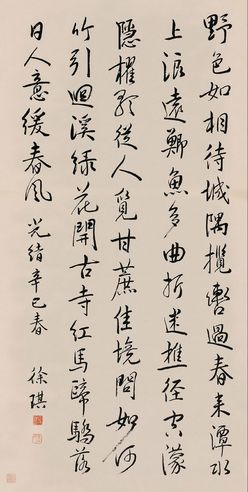 野色如相待城隅攬轡過春来潭水
上浪遠鄉魚多曲折迷樵径空濛
隱櫂歌従人覓甘蔗佳境問如何
竹引迴溪緑花開古寺紅馬蹄驕落
日人意緩春風 光緒辛巳春
徐琪